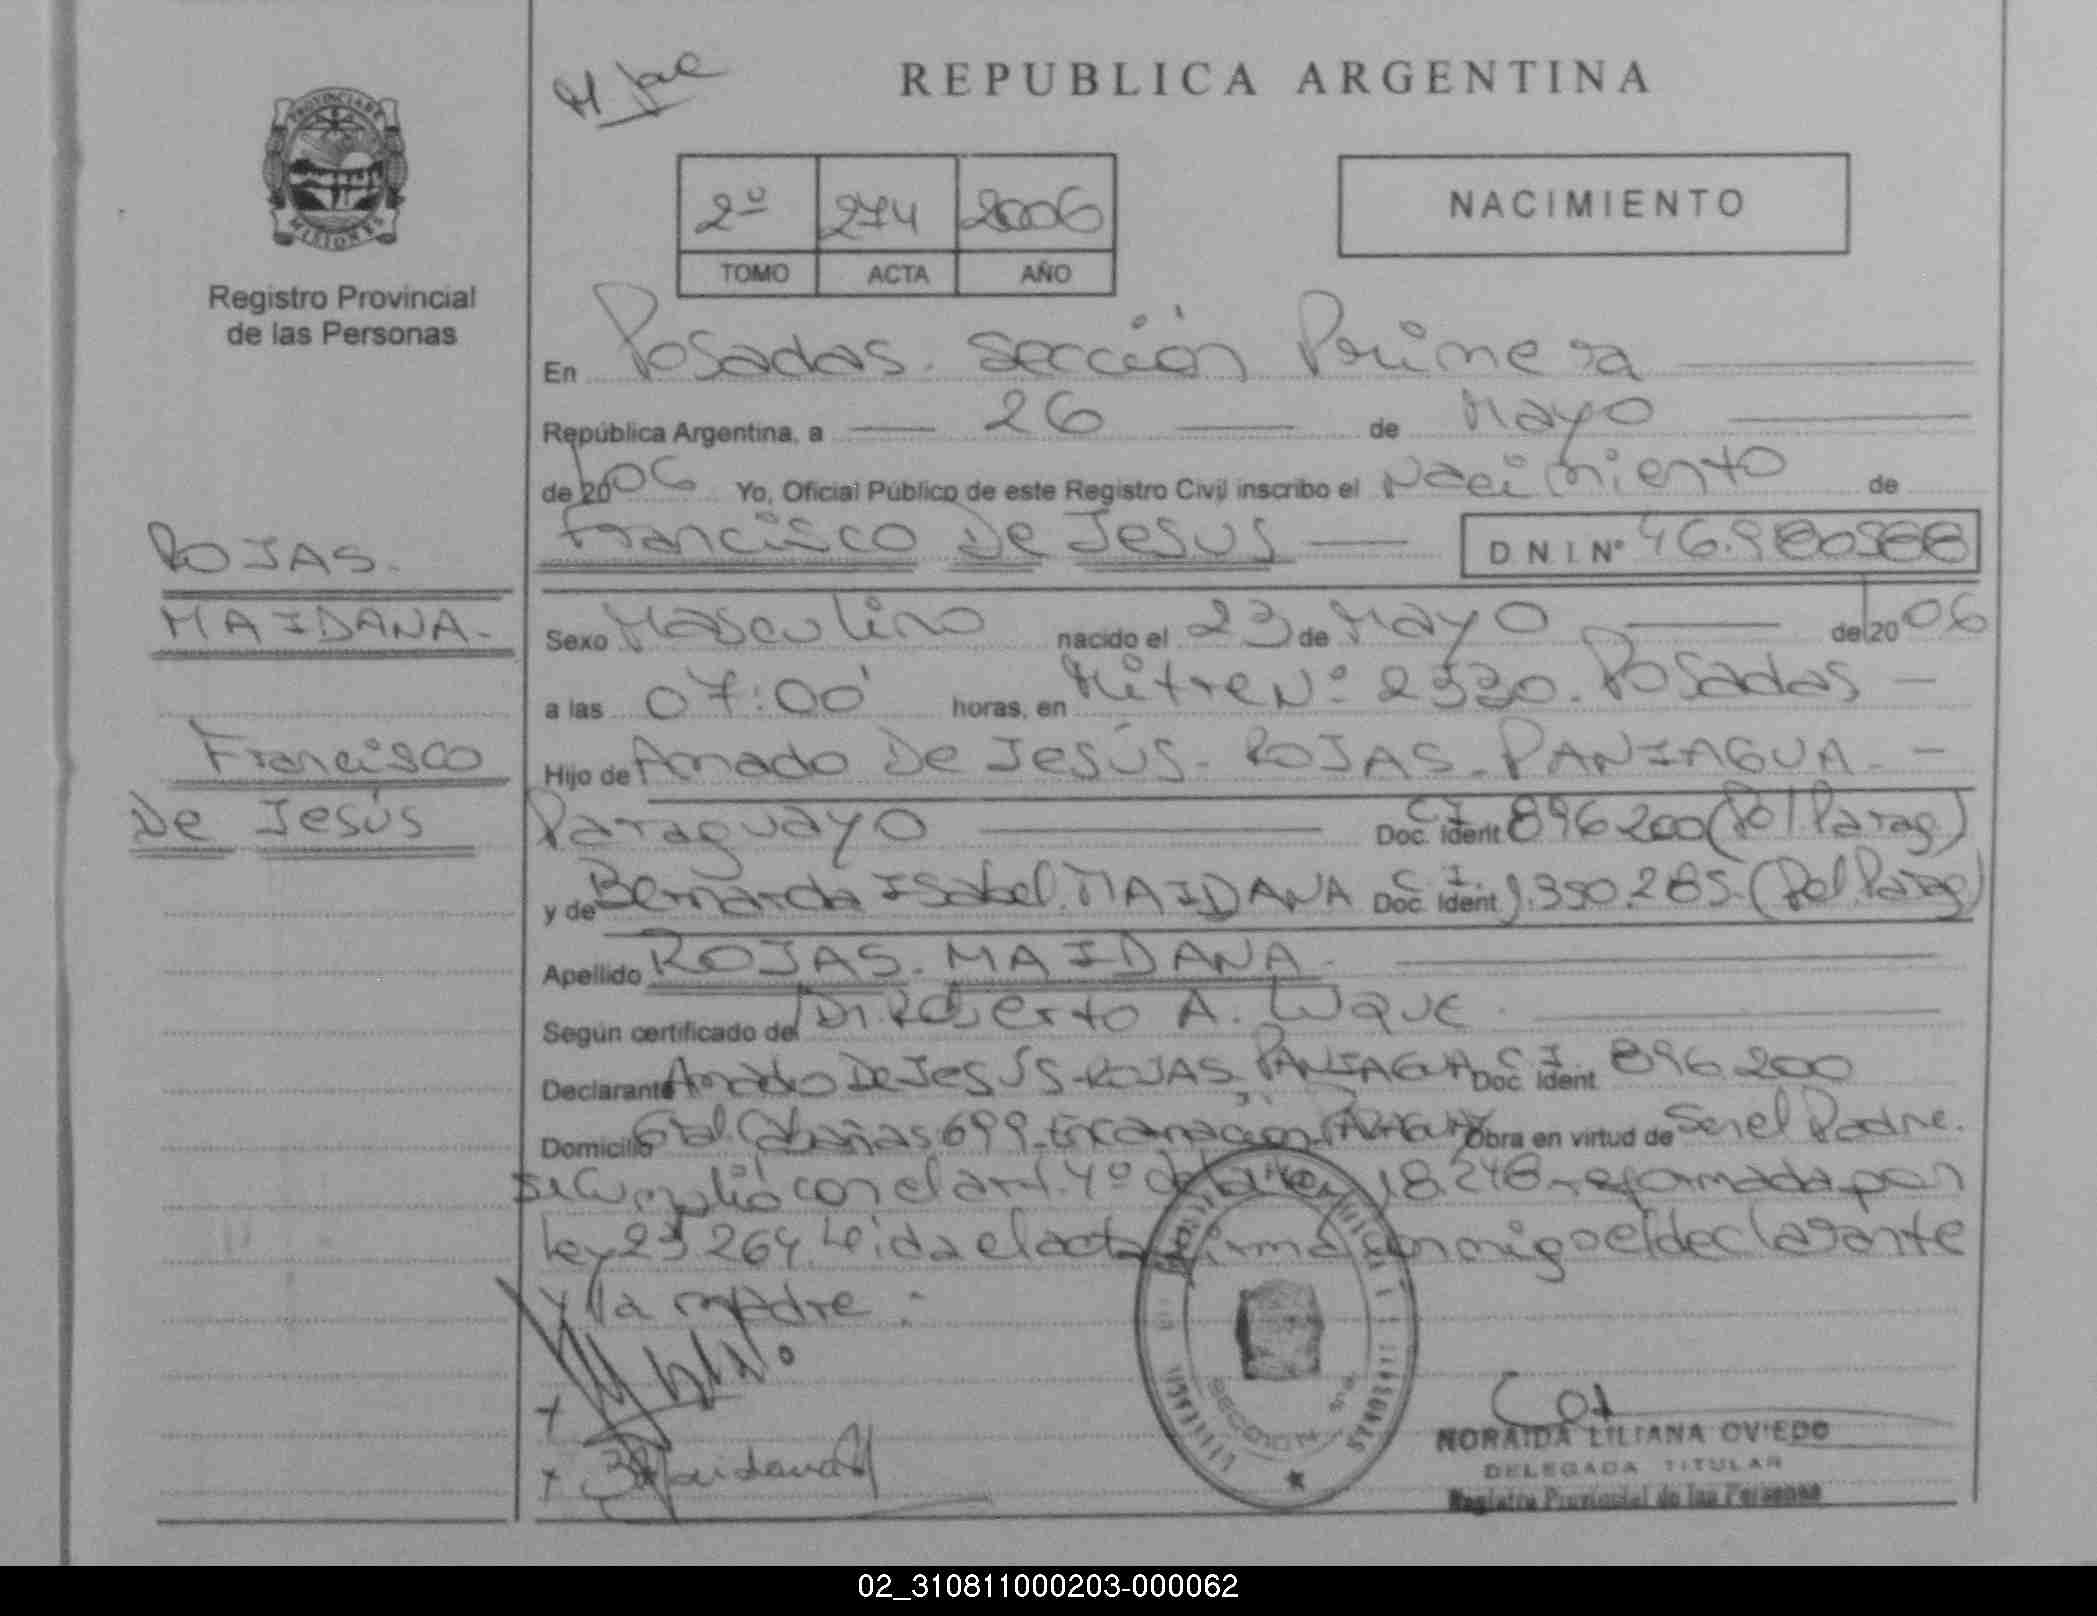 REPUBLICA ARGENTINA
PROVINCIA DE
MISIONES
Registro Provincial
de las Personas
2º 274 2006
TOMO ACTA AÑO
NACIMIENTO
En Posadas. Sección Primera
República Argentina, a 26 de Mayo
de 2006 Yo, Oficial Público de este Registro Civil inscribo el Nacimiento de
Francisco De Jesus D N I Nº
ROJAS.
MAIDANA-
Francisco
De Jesús
Sexo Masculino nacido el 23 de Mayo de 2006
a las 07:00 horas, en Mitre Nº 2330. Posadas
Hijo de Amado De Jesús- ROJAS- PANIAGUA-
Paraguayo C I Doc. Ident 896200 (Pol. Parag)
y de Bernarda Isabel. MAIDANA C. I. Doc. Ident 1.350.285. (Pol. Parag)
Apellido ROJAS. MAIDANA.
Según certificado de Dr. Roberto A. Luque.
Declarante Amado De Jesús-ROJAS PANIAGUA C I. Doc Ident 896.200
Domicilio Gral. Cabañas 699 Encarnación Obra en virtud de Ser el Padre.
se cumplió con el art. 4º de la ley 18.248 reformada por
ley 23.264. Leida el acta firma conmigo el declarante
y la madre.-
SECCION 1ra
NORAIDA LILIANA OVIEDO
DELEGADA TITULAR
Registro Provincial de las Personas
02_310811000203-000062